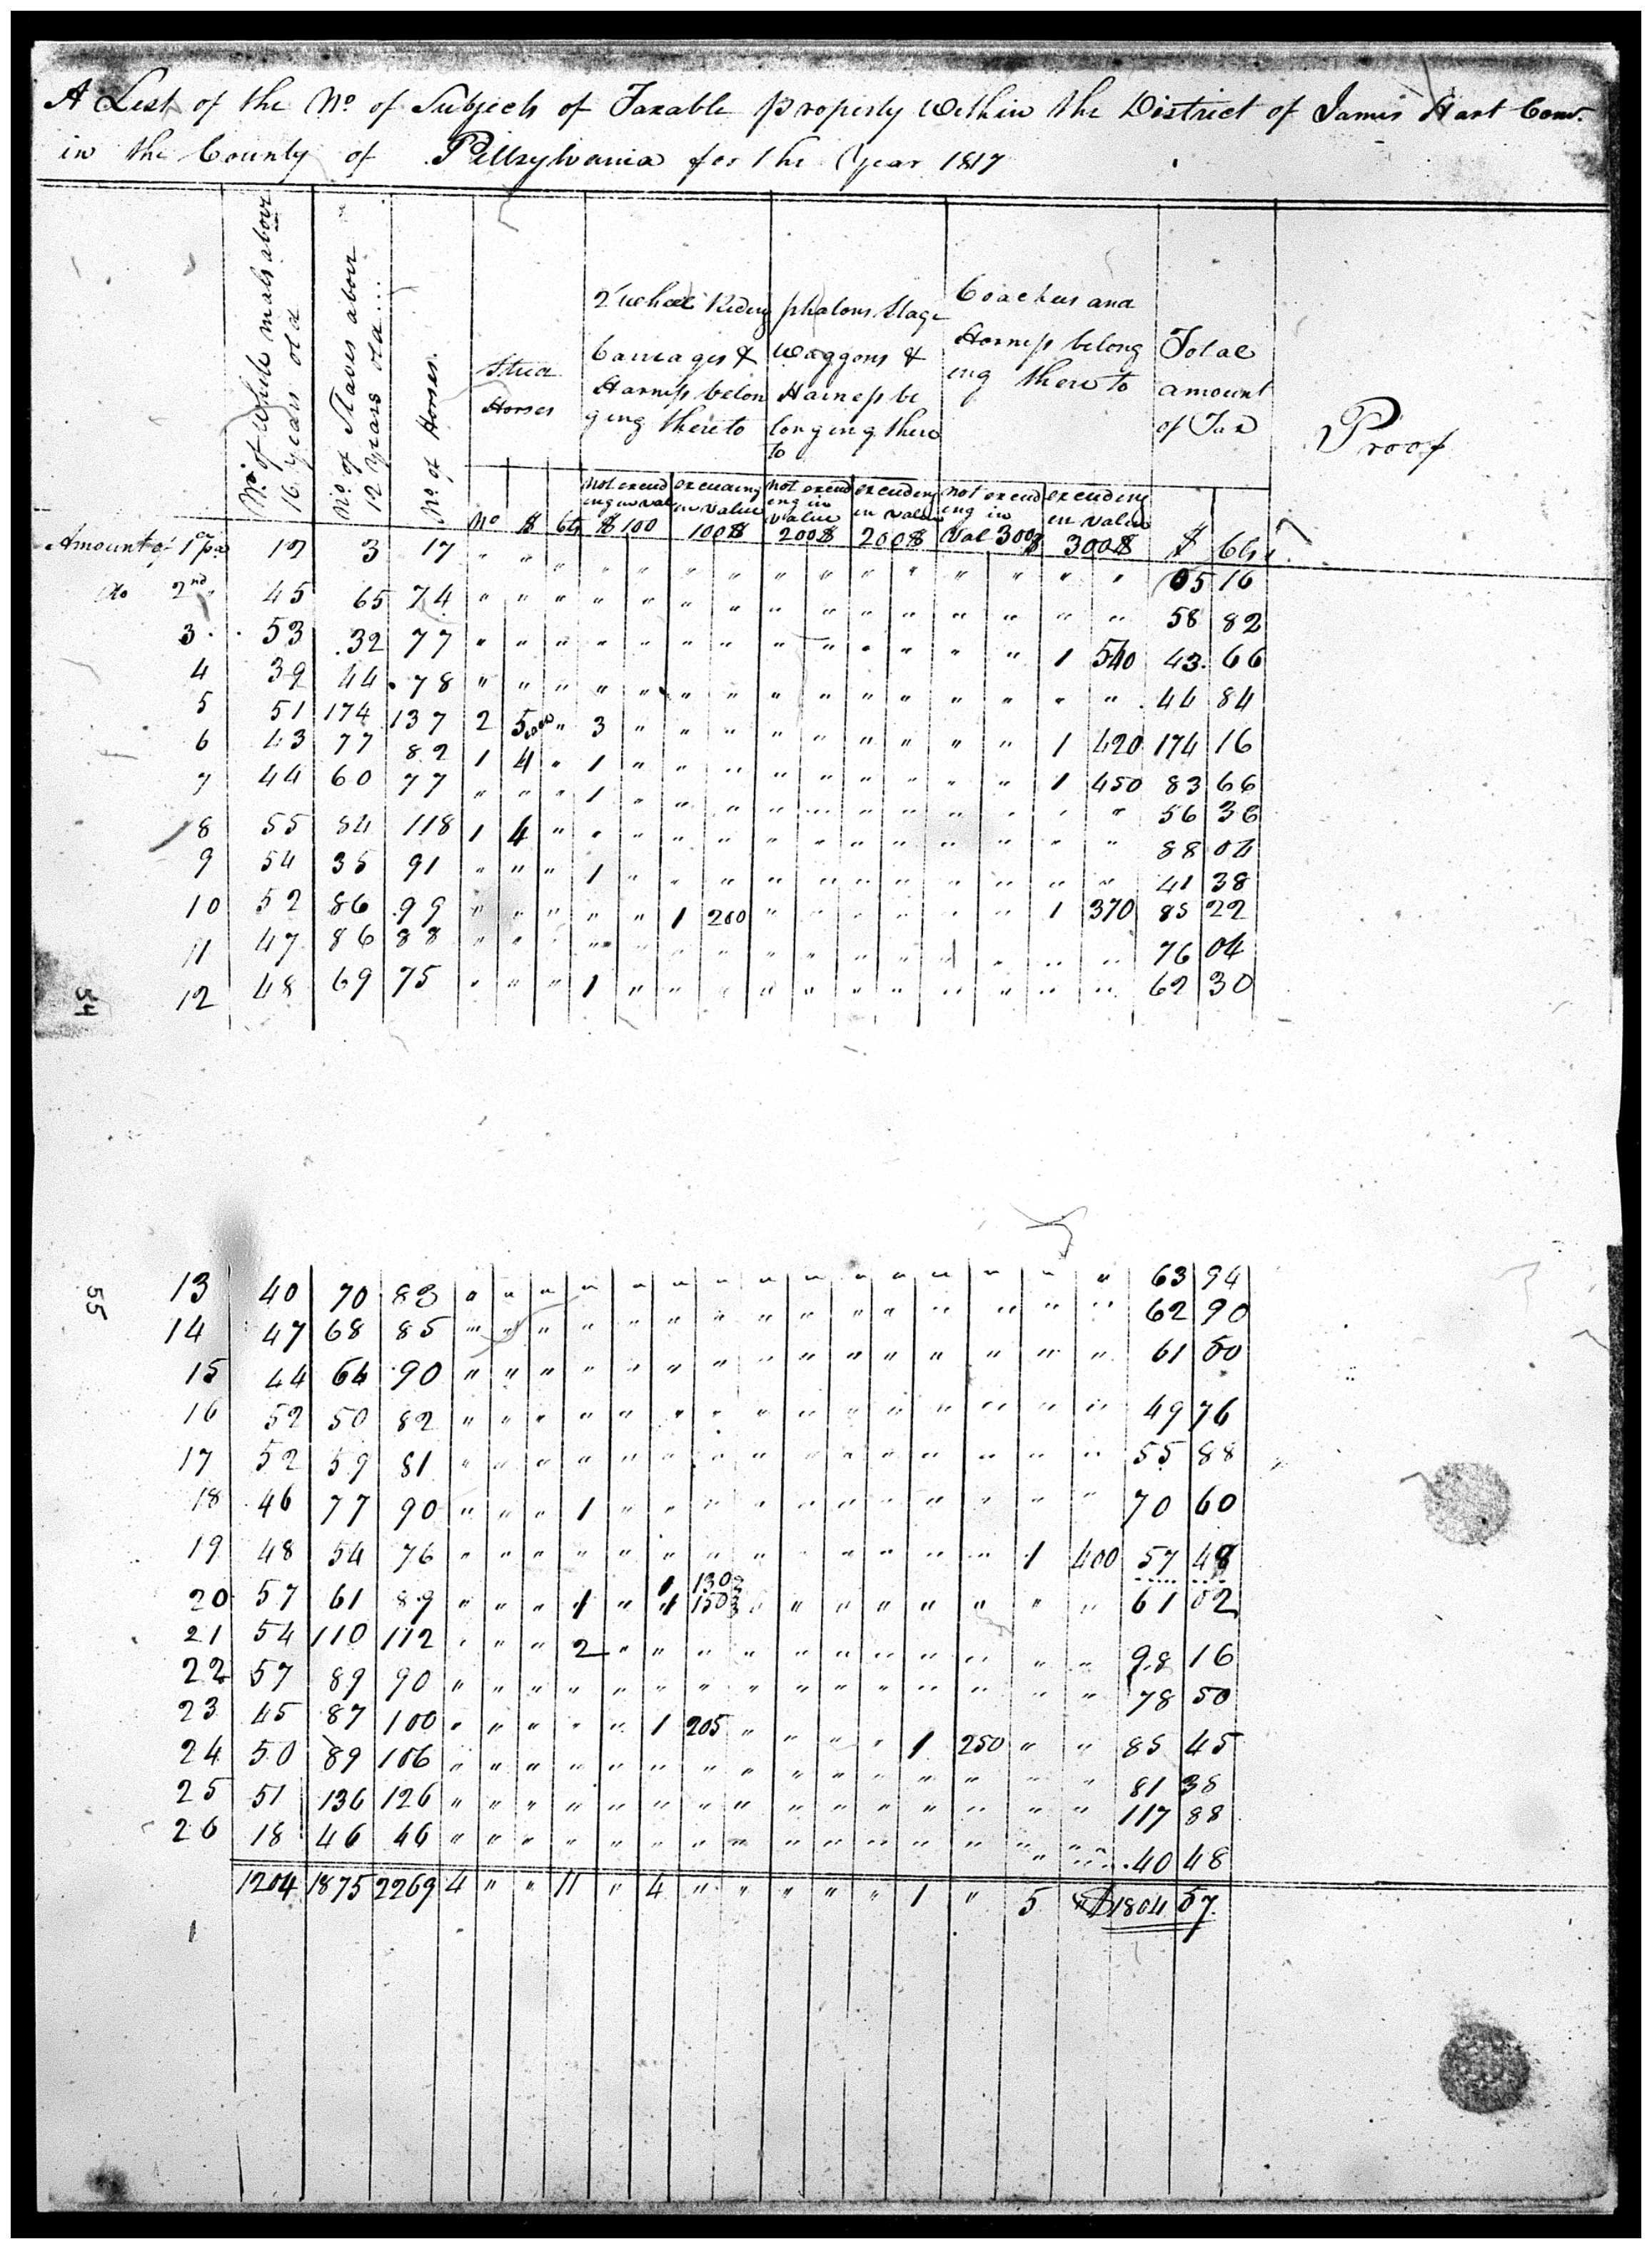 A List of the No. of Subjects of Taxable property Within the District of James Hart Com.
in the County of Pittsylvania for the Year 1817
No. of White males above 16 years old
No. of Slaves above 12 years old
No. of Horses
Stud Horses
2 wheel Riding Carriages & Harness belonging thereto
phatons Stage Waggons & Harness belonging thereto
Coaches and Harness belonging thereto
Total amount of Tax
Proof
No $ Cts
not exceeding in val $ 100
exceeding in value 100$
not exceeding in value 200$
exceeding in value 200$
not exceeding in Val 300$
exceeding in value 300$
$ Cts
Amount of 1st pa 3 17 " " " " " " " " " " " " " " " 05 16
Do 2nd 45 65 74 " " " " " " " " " " " " " " " 58 82
3 53 32 77 " " " " " " " " " " " " " 1 540 43 66
4 39 44 78 " " " " " " " " " " " " " " " 44 84
5 51 174 137 2 5 " 3 " " " " " " " " " 1 420 174 16
6 43 77 82 1 4 " 1 " " " " " " " " " 1 450 83 66
7 44 60 77 " " " 1 " " " " " " " " " " " 56 36
8 55 84 118 1 4 " " " " " " " " " " " " " 88 04
9 54 35 91 " " " 1 " " " " " " " " " " " 41 38
10 52 86 99 " " " " " 1 200 " " " " " " 1 370 85 22
11 47 86 88 " " " " " " " " " " " " " " " 76 04
12 48 69 75 " " " 1 " " " " " " " " " " " 62 30
54
55
13 40 70 83 " " " " " " " " " " " " " " " 63 94
14 47 68 85 " " " " " " " " " " " " " " " 62 90
15 44 64 90 " " " " " " " " " " " " " " " 61
16 52 50 82 " " " " " " " " " " " " " " " 49 76
17 52 59 81 " " " " " " " " " " " " " " " 55 88
18 46 77 90 " " " 1 " " " " " " " " " " " 70 60
19 48 54 76 " " " " " " " " " " " " " 1 400 57 48
1 130
20 57 61 89 " " " 1 " 1 150 " " " " " " " " 61 02
21 54 110 112 " " " 2 " " " " " " " " " " " 98 16
22 57 89 90 " " " " " " " " " " " " " " " 78 50
23 45 87 100 " " " " " 1 205 " " " " 1 250 " " 85 45
24 50 89 106 " " " " " " " " " " " " " " " 81 38
25 51 136 126 " " " " " " " " " " " " " " " 117 88
26 18 46 46 " " " " " " " " " " " " " " " 40 48
1204 1875 2269 4 " " 11 " 4 " " " " " 1 " 5 " $1804 57